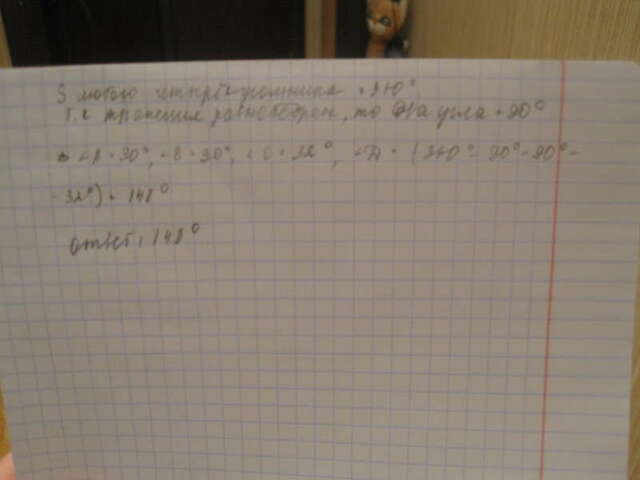 S любого четырёхугольника = 360°
т.к трапеция равнобедрен, то два угла = 90°
∠A = 90°, ∠B = 90°, ∠C = 32°, ∠D = (360° - 90° - 90° -
- 32°) = 148°
ответ: 148°